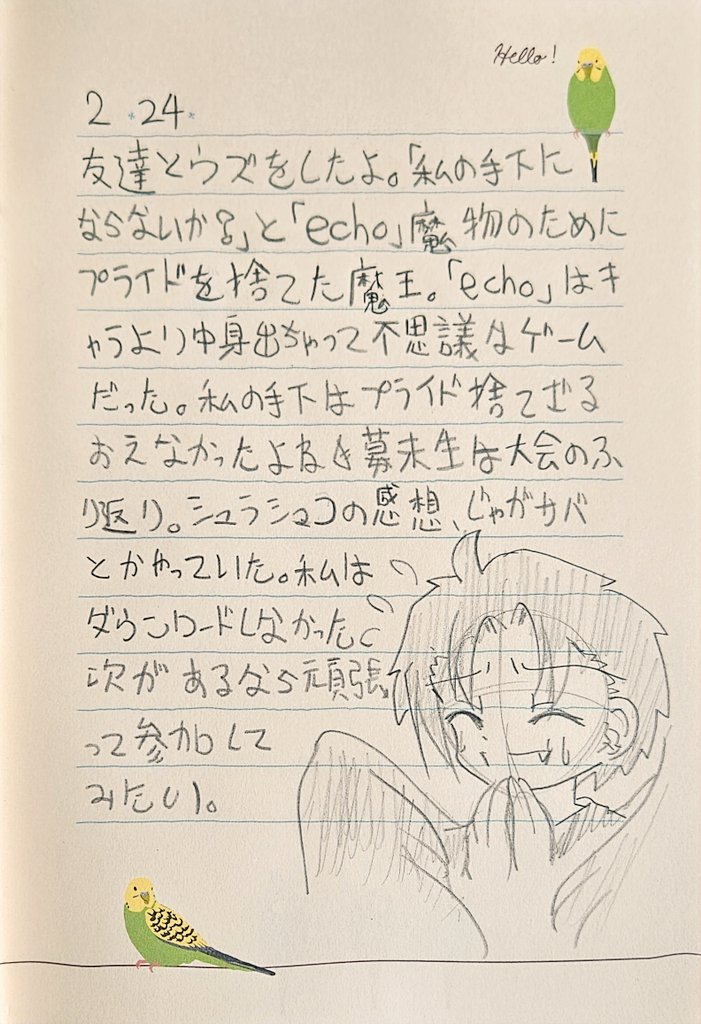 Hello!
2.24.
友達とウズをしたよ。「私の手下に
ならないか?」と「echo」魔物のために
プライドを捨てた魔王。「echo」はキ
ャラより中身出ちゃって不思議なゲーム
だった。私の手下はプライド捨てざる
おえなかったよね
幕末生は大会のふ
り返り。シュラショコの感想、じゃがサバ
とかやっていた。私は
ダウンロードしなかった。
次があるなら頑張
って参加して
みたい。